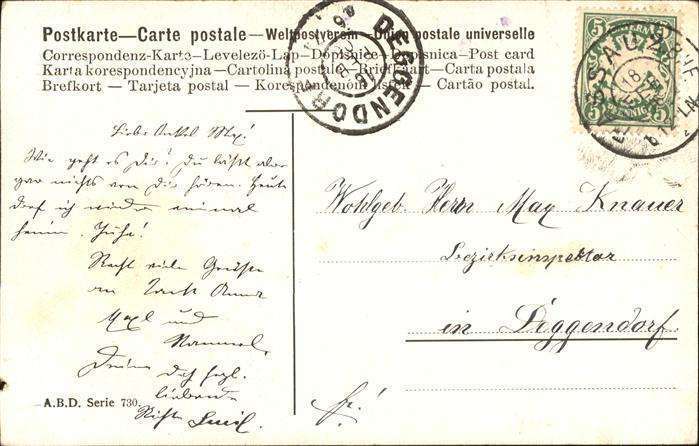 Postkarte—Carte postale—Weltpostverein—Union postale universelle
Correspondenz-Karte—Levelezö-Lap—Dopisnice—Dopisnica—Post card
Karta korespondencyjna—Cartolina postale—Briefkaart—Carta postala
Brefkort — Tarjeta postal — Korespondenčni listek — Cartão postal.
DEGGENDORF
PASSAU 2
18
BAYERN
5 5
PFENNIG
5 5
Lieber Onkel Max!
Wie geht es Dir? Du läßt aber
gar nichts von Dir hören. Heute
darf ich wieder einmal
heim. Juhu!
Recht viele Grüße
an Tante Anna
Maxl und
Deine Dich herzl.
liebende
Wohlgeb. Herrn Max Knauer
Bezirksinspektor
in Deggendorf
fr!
A.B.D. Serie 730.